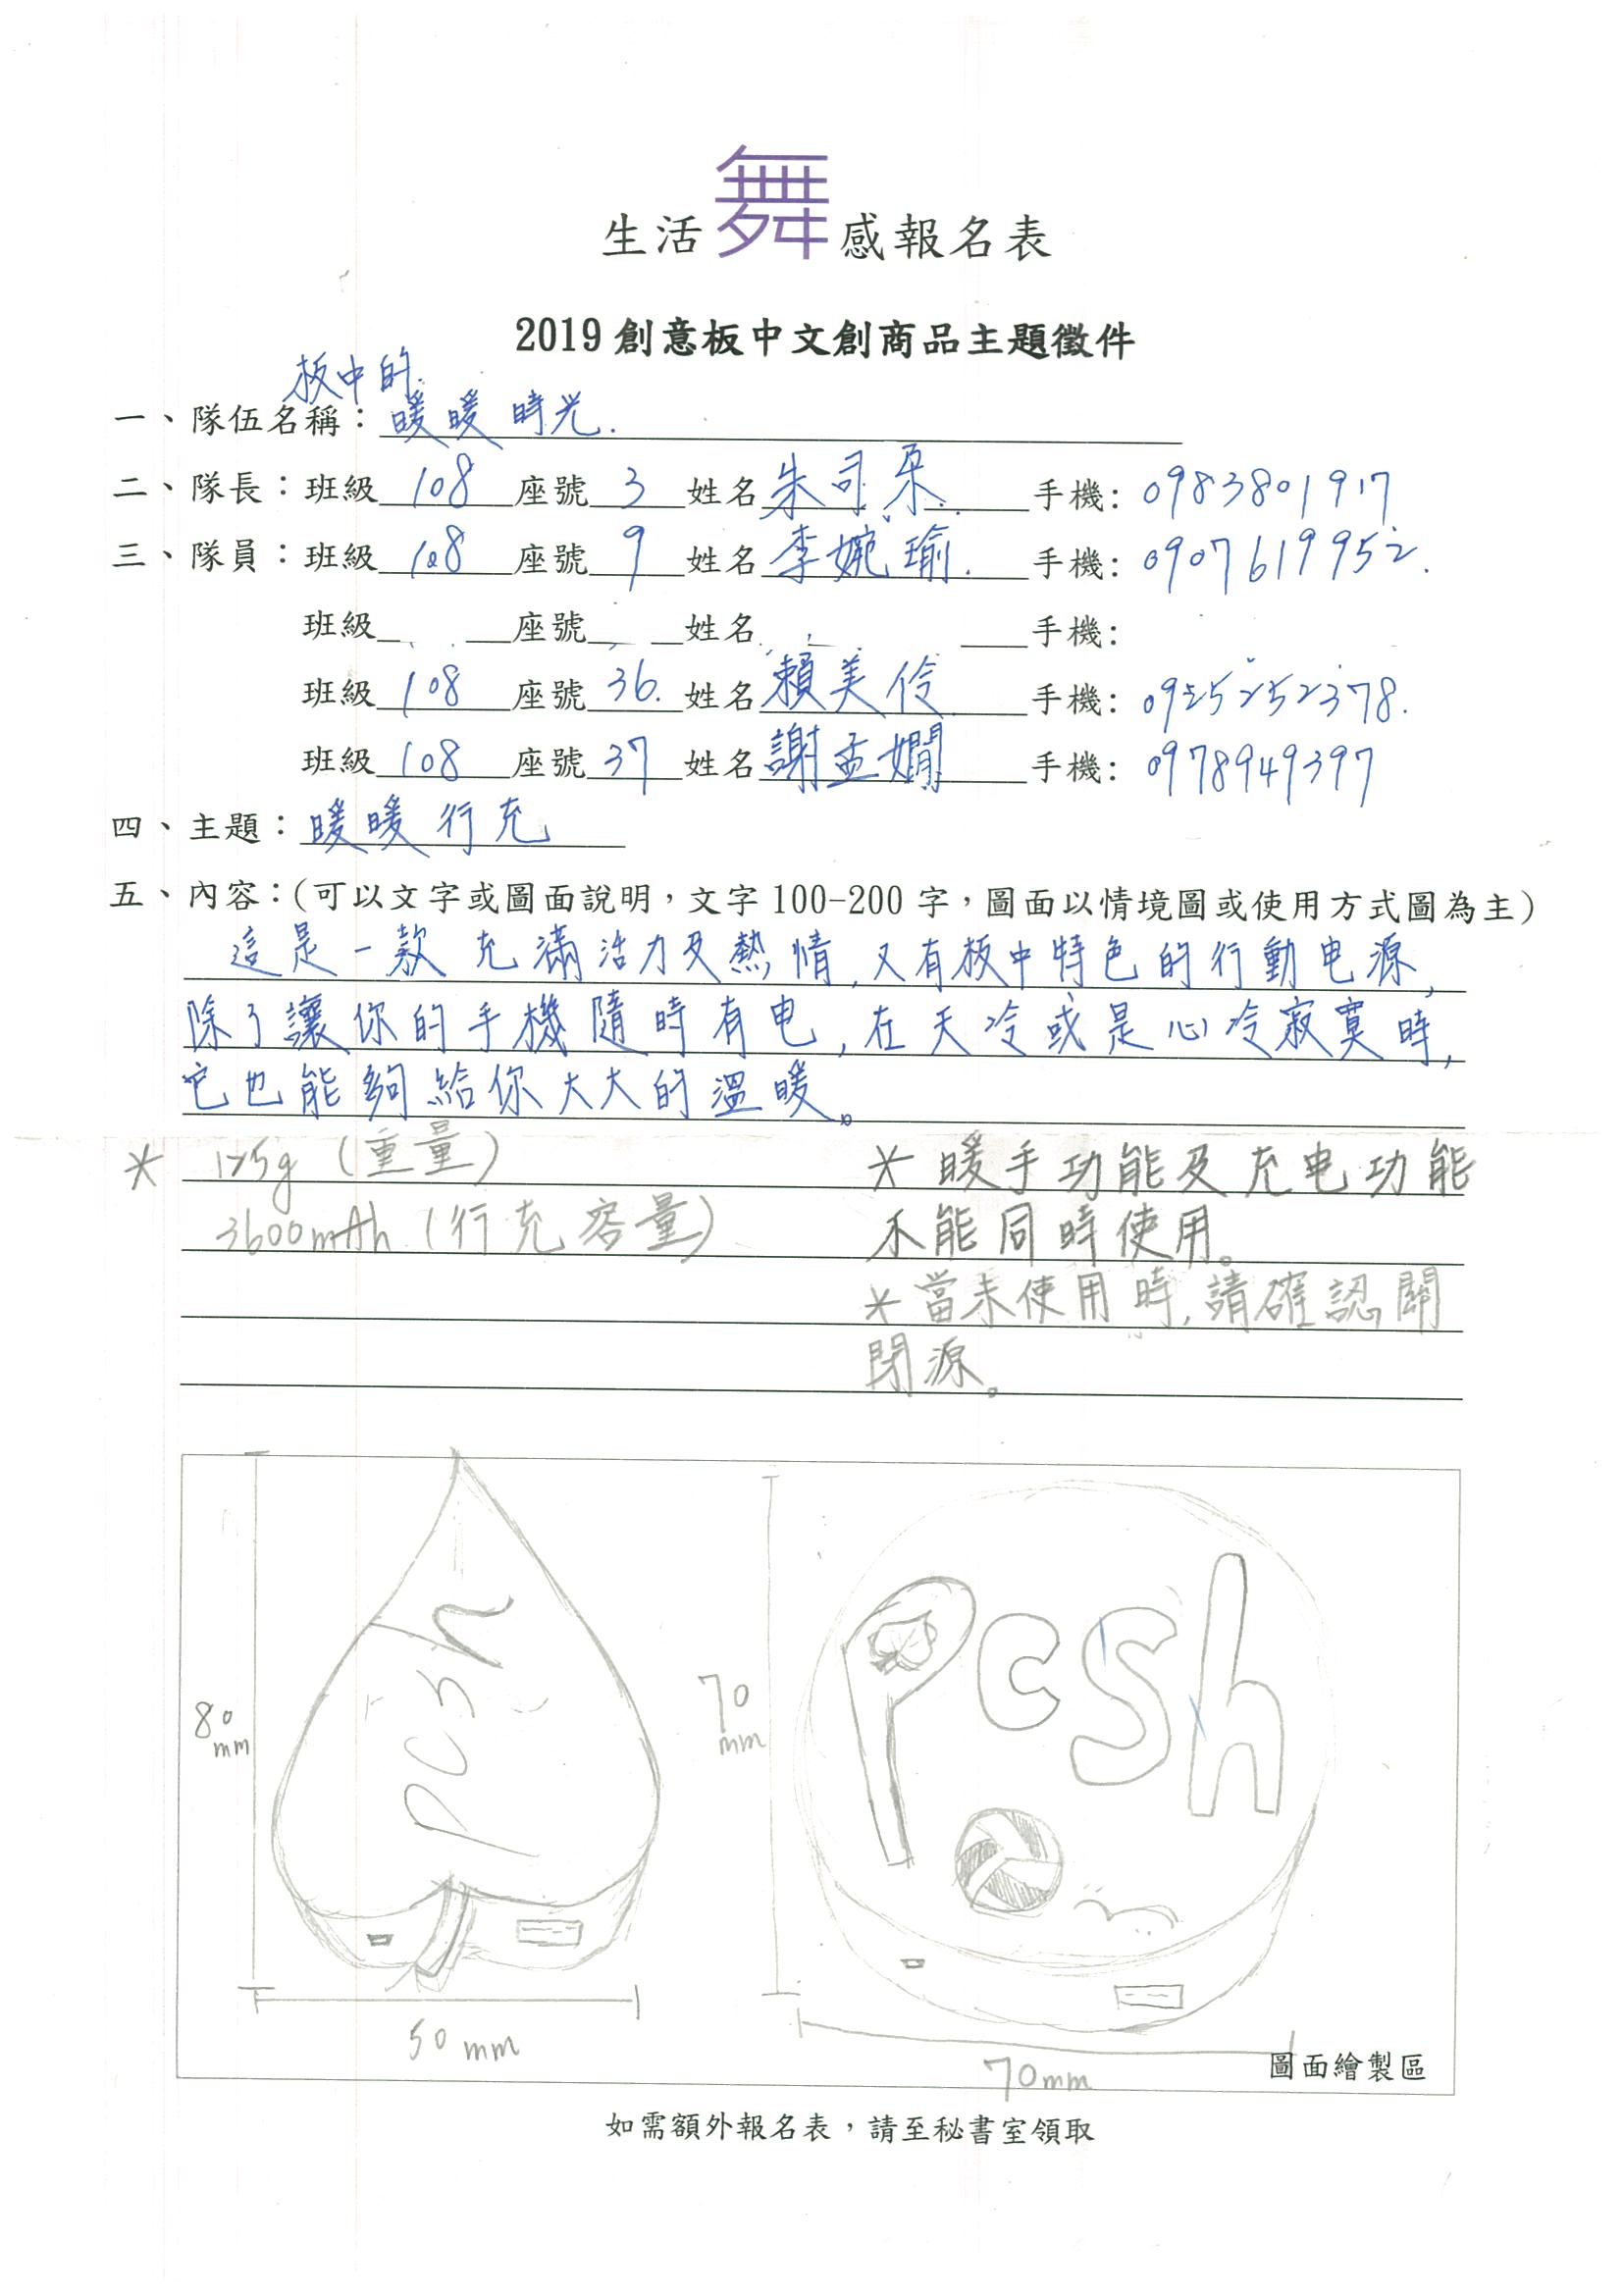 生活舞感報名表
2019創意板中文創商品主題徵件
板中的
一、隊伍名稱：暖暖時光.
二、隊長：班級 108 座號 3 姓名 朱司朵 手機: 0983801917
三、隊員：班級 108 座號 9 姓名 李婉瑜. 手機: 0907619952.
班級 座號 姓名 手機:
班級 108 座號 36. 姓名 賴美伶 手機: 0925252378.
班級 108 座號 37 姓名 謝孟嫺 手機: 0978949397
四、主題：暖暖行充
五、內容：(可以文字或圖面說明，文字100-200字，圖面以情境圖或使用方式圖為主)
這是一款充滿活力及熱情,又有板中特色的行動电源,
除了讓你的手機隨時有电,在天冷或是心冷寂寞時,
它也能夠給你大大的溫暖。
* 125g (重量)
3600mAh (行充容量)
* 暖手功能及充电功能
不能同時使用。
* 當未使用時,請確認關
閉源。
pcsh
80
mm
50 mm
Pcsh
70
mm
70mm
圖面繪製區
如需額外報名表，請至秘書室領取